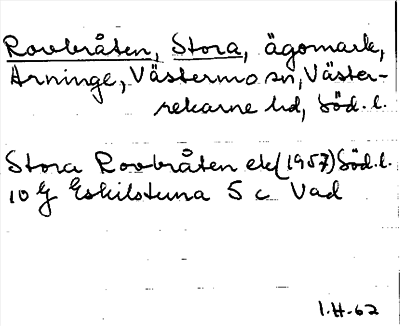 Rovbråten, Stora, ägomark,
Arninge, Västermo sn, Väster-
rekarne hd, Söd. l.
Stora Rovbråten ek (1957) Söd. l.
10 G Eskilstuna 5 c Vad
I.H-62